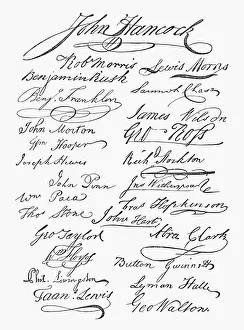 John Hancock
Robt Morris Lewis Morris
Benjamin Rush
Benj. Franklin Samuel Chase
John Morton James Wilson
Wm Hooper Geo Ross
Joseph Hewes Richd Stockton
John Penn Jno Witherspoon
Wm Paca Fras Hopkinson
Thos Stone John Hart
Geo Taylor Abra Clark
Wm Floyd Button Gwinnett
Phil. Livingston Lyman Hall
Frans. Lewis Geo Walton.